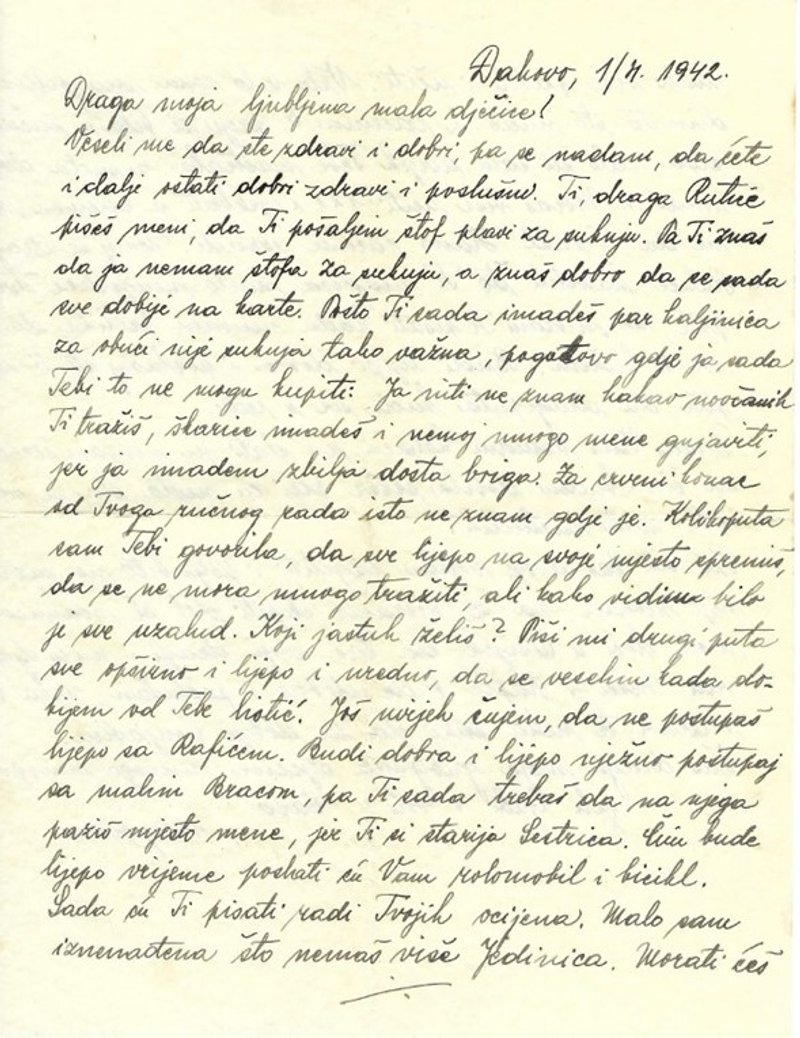 Đakovo, 1/4. 1942.
Draga moja ljubljena mala dječice!
Veseli me da ste zdravi i dobri, pa se nadam, da ćete
i dalje ostati dobri zdravi i poslušni. Ti, draga Rutiće
pišeš meni, da Ti pošaljem štof plavi za suknju. Pa Ti znaš
da ja nemam štofa za suknju, a znaš dobro da se sada
sve dobije na karte. Pošto Ti sada imadeš par haljinica
za obući nije suknja tako važna, pogotovo gdje ja sada
Tebi to ne mogu kupiti. Ja niti ne znam kakav
Ti tražiš, škarice imadeš i nemoj mnogo mene gnjaviti,
jer ja imadem zbilja dosta briga. Za crveni konac
od Tvoga ručnog rada isto ne znam gdje je. Kolikoputa
sam Tebi govorila, da sve lijepo na svoje mjesto spremiš,
da se ne mora mnogo tražiti, ali kako vidim bilo
je sve uzalud. Koji jastuk želiš? Piši mi drugi puta
sve opširno i lijepo i uredno, da se veselim kada do-
bijem od Tebe listić. Još uvijek čujem, da ne postupaš
lijepo sa Rafićem. Budi dobra i lijepo nježno postupaj
sa malim Bracom, pa Ti sada trebaš da na njega
paziš mjesto mene, jer Ti si starija Sestrica. Čim bude
lijepo vrijeme poslati ću Vam rolomobil i bicikl.
Sada ću Ti pisati radi Tvojih ocijena. Malo sam
iznenađena što nemaš više Jedinica. Morati ćeš